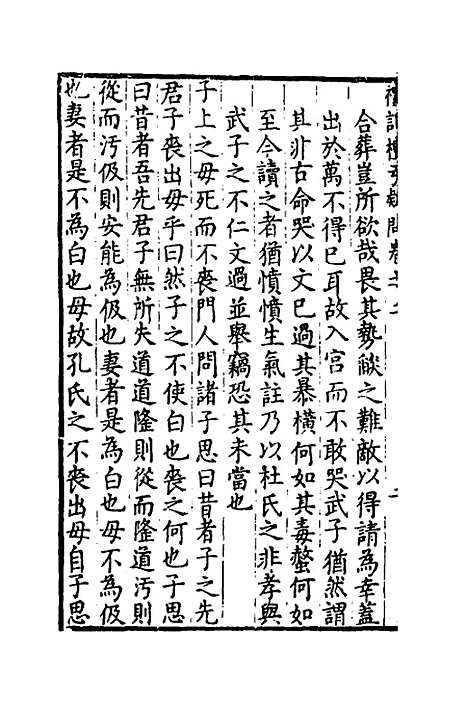 禮記檀弓疑問卷之上
合葬豈所欲哉畏其勢燄之難敵以得請為幸蓋
出於萬不得已耳故入宮而不敢哭武子猶然謂
其非古命哭以文已過其暴橫何如其毒螫何如
至今讀之者猶憤憤生氣註乃以杜氏之非孝與
武子之不仁文過並舉竊恐其未當也
子上之母死而不喪門人問諸子思曰昔者子之先
君子喪出母乎曰然子之不使白也喪之何也子思
曰昔者吾先君子無所失道道隆則從而隆道汚則
從而汚伋則安能為伋也妻者是為白也母不為伋
也妻者是不為白也母故孔氏之不喪出母自子思